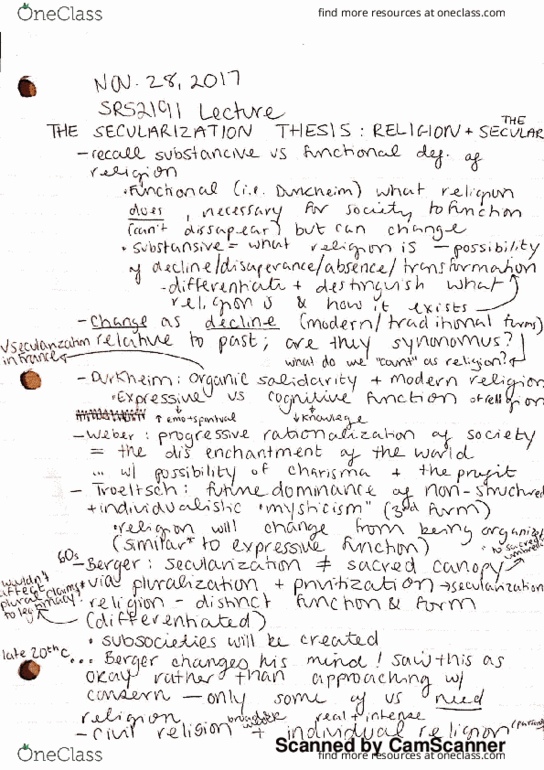 OneClass
find more resources at oneclass.com
NOV. 28, 2017
SRS2191 Lecture
THE SECULARIZATION THESIS : RELIGION + THE SECULAR
- recall substancive vs functional def. of
religion
• functional (i.e. Durkheim) what religion
does, necessary for society to function
(can't dissapear) but can change
• substansive = what religion is — possibility
of decline/disaperance/absence/transformation
- differentiate + destinguish what
religion is & how it exists
- Change as decline (modern/traditional forms)
relative to past; are they synonomus?
Vsecularization
in france
what do we "count" as religion?
- Durkheim: organic salidarity + modern religion
• Expressive vs cognitive function of religion
↑ emo+spiritual ↓ knowlege
- Weber: progressive rationalization of society
= the dis enchantment of the world
... w/ possibility of charisma + the profit
- Troeltsch: future dominance of non-structured
+ individualistic "mysticism" (3rd form)
• religion will change from being organized
(similar* to expressive function)
60s
- Berger: secularization ≠ sacred canopy
* to sacred
via pluralization + privitization → secularization
wouldn't
plural claims
to legitimacy
religion - distinct function & form
(differentiated)
• subsocieties will be created
late 20th c.
... Berger changes his mind! saw this as
okay rather than approaching w/
consern — only some of us need
religion
real + intense
- Civil religion + individual religion
Scanned by CamScanner
OneClass
find more resources at oneclass.com